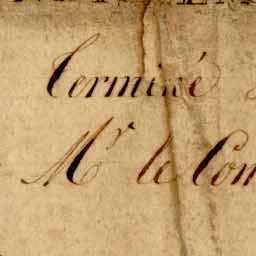 Terminé
Mr le Com